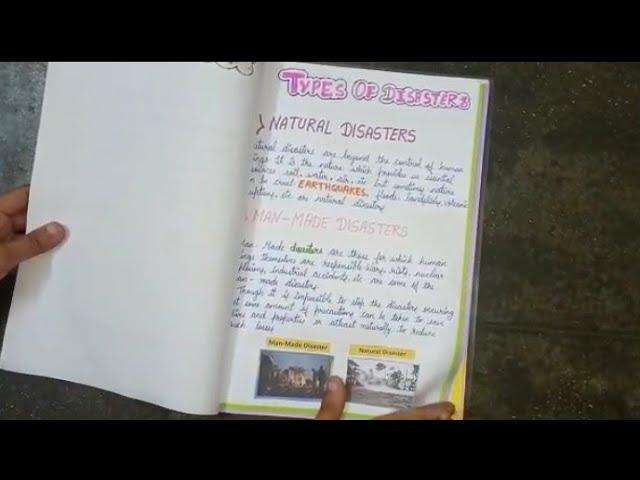 TYPES OF DISASTERS
NATURAL DISASTERS
atural disasters are beyond the control of human
ings. It is the nature which provides us essential
sources soil, water, air, etc but sometimes nature
n be cruel EARTHQUAKES, floods, landslides, volcanic
uptions, etc are natural disasters
MAN-MADE DISASTERS
an-Made disasters are those for which human
ings themselves are responsible. Wars, riots, nuclear
plosions, industrial accidents, etc are some of the
an-made disasters.
Though it is impossible to stop the disasters occuring
t some amount of precautions can be taken to save
lives and properties or atleast naturally to reduce
such losses
Man-Made Disaster
Natural Disaster